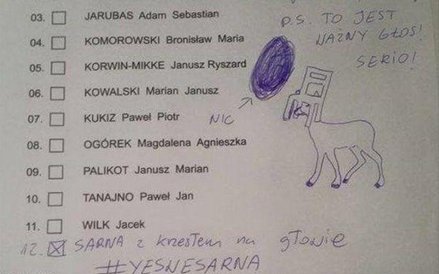 03. JARUBAS Adam Sebastian
04. KOMOROWSKI Bronisław Maria
05. KORWIN-MIKKE Janusz Ryszard
06. KOWALSKI Marian Janusz
07. KUKIZ Paweł Piotr
08. OGÓREK Magdalena Agnieszka
09. PALIKOT Janusz Marian
10. TANAJNO Paweł Jan
11. WILK Jacek
12. SARNA z krzesłem na głowie
#YESNESARNA
P.S. TO JEST
WAŻNY GŁOS!
SERIO!
NIC